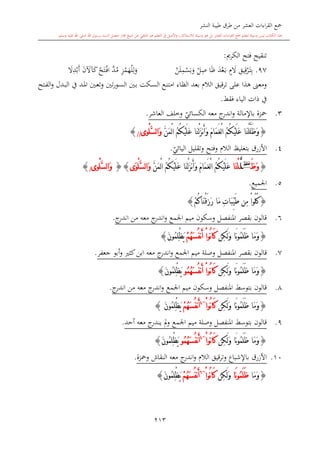 جمع القراءات العشر من طرق طيبة النشر
تنقيح فتح الكريم:
٩٧. بِتَرْقِيقِ
ومعنى هذا على ترقيق اللام بعد الظاء امتنع السكت بين السورتين وتعين المد في البدل والفتح
في ذات الياء فقط.
٣. حمزة بالإمالة واندرج معه الكسائي وخلف العاشر.
﴿ وَظَلَّلْنَا عَلَيْكُمُ الْغَمَامَ وَأَنزَلْنَا عَلَيْكُمُ الْمَنَّ وَالسَّلْوَىٰ ﴾
٤. الأزرق بتغليظ اللام وفتح وتقليل اليائي.
﴿ وَظَلَّلْنَا عَلَيْكُمُ الْغَمَامَ وَأَنزَلْنَا عَلَيْكُمُ الْمَنَّ وَالسَّلْوَىٰ ﴾ ﴿ وَالسَّلْوَىٰ ﴾
٥. الجميع.
﴿ كُلُوا مِن طَيِّبَاتِ مَا رَزَقْنَاكُمْ ﴾
٦. قالون بقصر المنفصل وسكون ميم الجمع واندرج معه من اندرج.
﴿ وَمَا ظَلَمُونَا وَلَٰكِن كَانُوا أَنفُسَهُمْ يَظْلِمُونَ ﴾
٧. قالون بقصر المنفصل وصلة ميم الجمع واندرج معه ابن كثير وأبو جعفر.
﴿ وَمَا ظَلَمُونَا وَلَٰكِن كَانُوا أَنفُسَهُمُو يَظْلِمُونَ ﴾
٨. قالون بتوسط المنفصل وسكون ميم الجمع واندرج معه من اندرج.
﴿ وَمَا ظَلَمُونَا وَلَٰكِن كَانُوا أَنفُسَهُمْ يَظْلِمُونَ ﴾
٩. قالون بتوسط المنفصل وصلة ميم الجمع ولم يندرج معه أحد.
﴿ وَمَا ظَلَمُونَا وَلَٰكِن كَانُوا أَنفُسَهُمُو يَظْلِمُونَ ﴾
١٠. الأزرق بالإشباع وترقيق اللام واندرج معه النقاش وحمزة.
﴿ وَمَا ظَلَمُونَا وَلَٰكِن كَانُوا أَنفُسَهُمْ يَظْلِمُونَ ﴾
٢١٣